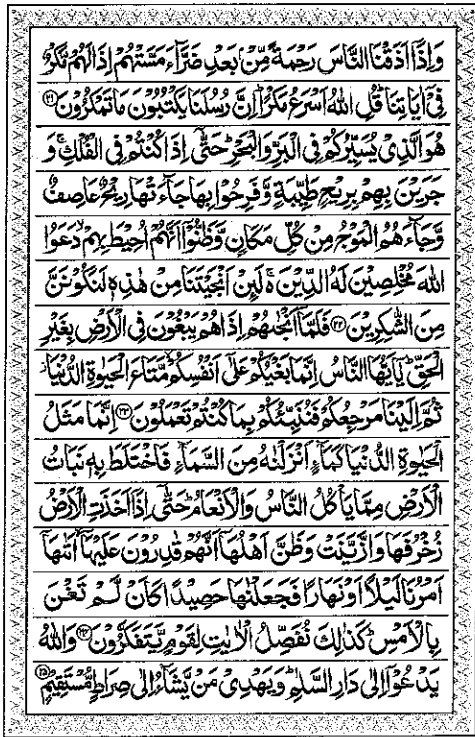 وَاِذَآ اَذَقْنَا النَّاسَ رَحْمَةً مِّنْۢ بَعْدِ ضَرَّآءَ مَسَّتْهُمْ اِذَا لَهُمْ مَّكْرٌ
فِيْٓ اٰيَاتِنَا قُلِ اللّٰهُ اَسْرَعُ مَكْرًا اِنَّ رُسُلَنَا يَكْتُبُوْنَ مَا تَمْكُرُوْنَ ۝۲۱
هُوَ الَّذِيْ يُسَيِّرُكُمْ فِي الْبَرِّ وَالْبَحْرِ حَتّٰٓى اِذَا كُنْتُمْ فِي الْفُلْكِ وَ
جَرَيْنَ بِهِمْ بِرِيْحٍ طَيِّبَةٍ وَّفَرِحُوْا بِهَا جَآءَتْهَا رِيْحٌ عَاصِفٌ
وَّجَآءَهُمُ الْمَوْجُ مِنْ كُلِّ مَكَانٍ وَّظَنُّوْٓا اَنَّهُمْ اُحِيْطَ بِهِمْ دَعَوُا
اللّٰهَ مُخْلِصِيْنَ لَهُ الدِّيْنَ لَئِنْ اَنْجَيْتَنَا مِنْ هٰذِهٖ لَنَكُوْنَنَّ
مِنَ الشّٰكِرِيْنَ ۝۲۲ فَلَمَّآ اَنْجٰىهُمْ اِذَا هُمْ يَبْغُوْنَ فِي الْاَرْضِ بِغَيْرِ
الْحَقِّ يٰٓاَيُّهَا النَّاسُ اِنَّمَا بَغْيُكُمْ عَلٰٓى اَنْفُسِكُمْ مَّتَاعَ الْحَيٰوةِ الدُّنْيَا
ثُمَّ اِلَيْنَا مَرْجِعُكُمْ فَنُنَبِّئُكُمْ بِمَا كُنْتُمْ تَعْمَلُوْنَ ۝۲۳ اِنَّمَا مَثَلُ
الْحَيٰوةِ الدُّنْيَا كَمَآءٍ اَنْزَلْنٰهُ مِنَ السَّمَآءِ فَاخْتَلَطَ بِهٖ نَبَاتُ
الْاَرْضِ مِمَّا يَاْكُلُ النَّاسُ وَالْاَنْعَامُ حَتّٰٓى اِذَآ اَخَذَتِ الْاَرْضُ
زُخْرُفَهَا وَازَّيَّنَتْ وَظَنَّ اَهْلُهَآ اَنَّهُمْ قٰدِرُوْنَ عَلَيْهَآ اَتٰىهَآ
اَمْرُنَا لَيْلًا اَوْ نَهَارًا فَجَعَلْنٰهَا حَصِيْدًا كَاَنْ لَّمْ تَغْنَ
بِالْاَمْسِ كَذٰلِكَ نُفَصِّلُ الْاٰيٰتِ لِقَوْمٍ يَّتَفَكَّرُوْنَ ۝۲۴ وَاللّٰهُ
يَدْعُوْٓا اِلٰى دَارِ السَّلٰمِ وَيَهْدِيْ مَنْ يَّشَآءُ اِلٰى صِرَاطٍ مُّسْتَقِيْمٍ ۝۲۵